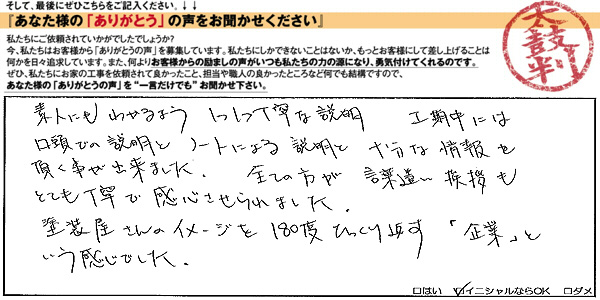 そして、最後にぜひこちらをご記入ください。↓↓
『あなた様の「ありがとう」の声をお聞かせください』
私たちにご依頼されていかがでしたでしょうか?
今、私たちはお客様から「ありがとうの声」を募集しています。私たちにしかできないことはないか、もっとお客様にして差し上げることは
何かを日々追求しています。また、何よりお客様からの励ましの声がいつも私たちの力の源になり、勇気付けてくれるのです。
ぜひ、私たちにお家の工事を依頼されて良かったこと、担当や職人の良かったところなど何でも結構ですので、
あなた様の「ありがとうの声」を“一言だけでも”お聞かせ下さい。
太鼓判
素人にもわかるよう 1つ1つ丁寧な説明 工期中には
口頭での説明と ノートによる 説明と 十分な情報を
頂く事が出来ました。 全ての方が 言葉遣い 挨拶も
とても丁寧で感心させられました。
塗装屋さんのイメージを180度ひっくり返す「企業」と
いう感じでした。
口はい ☑イニシャルならOK 口ダメ